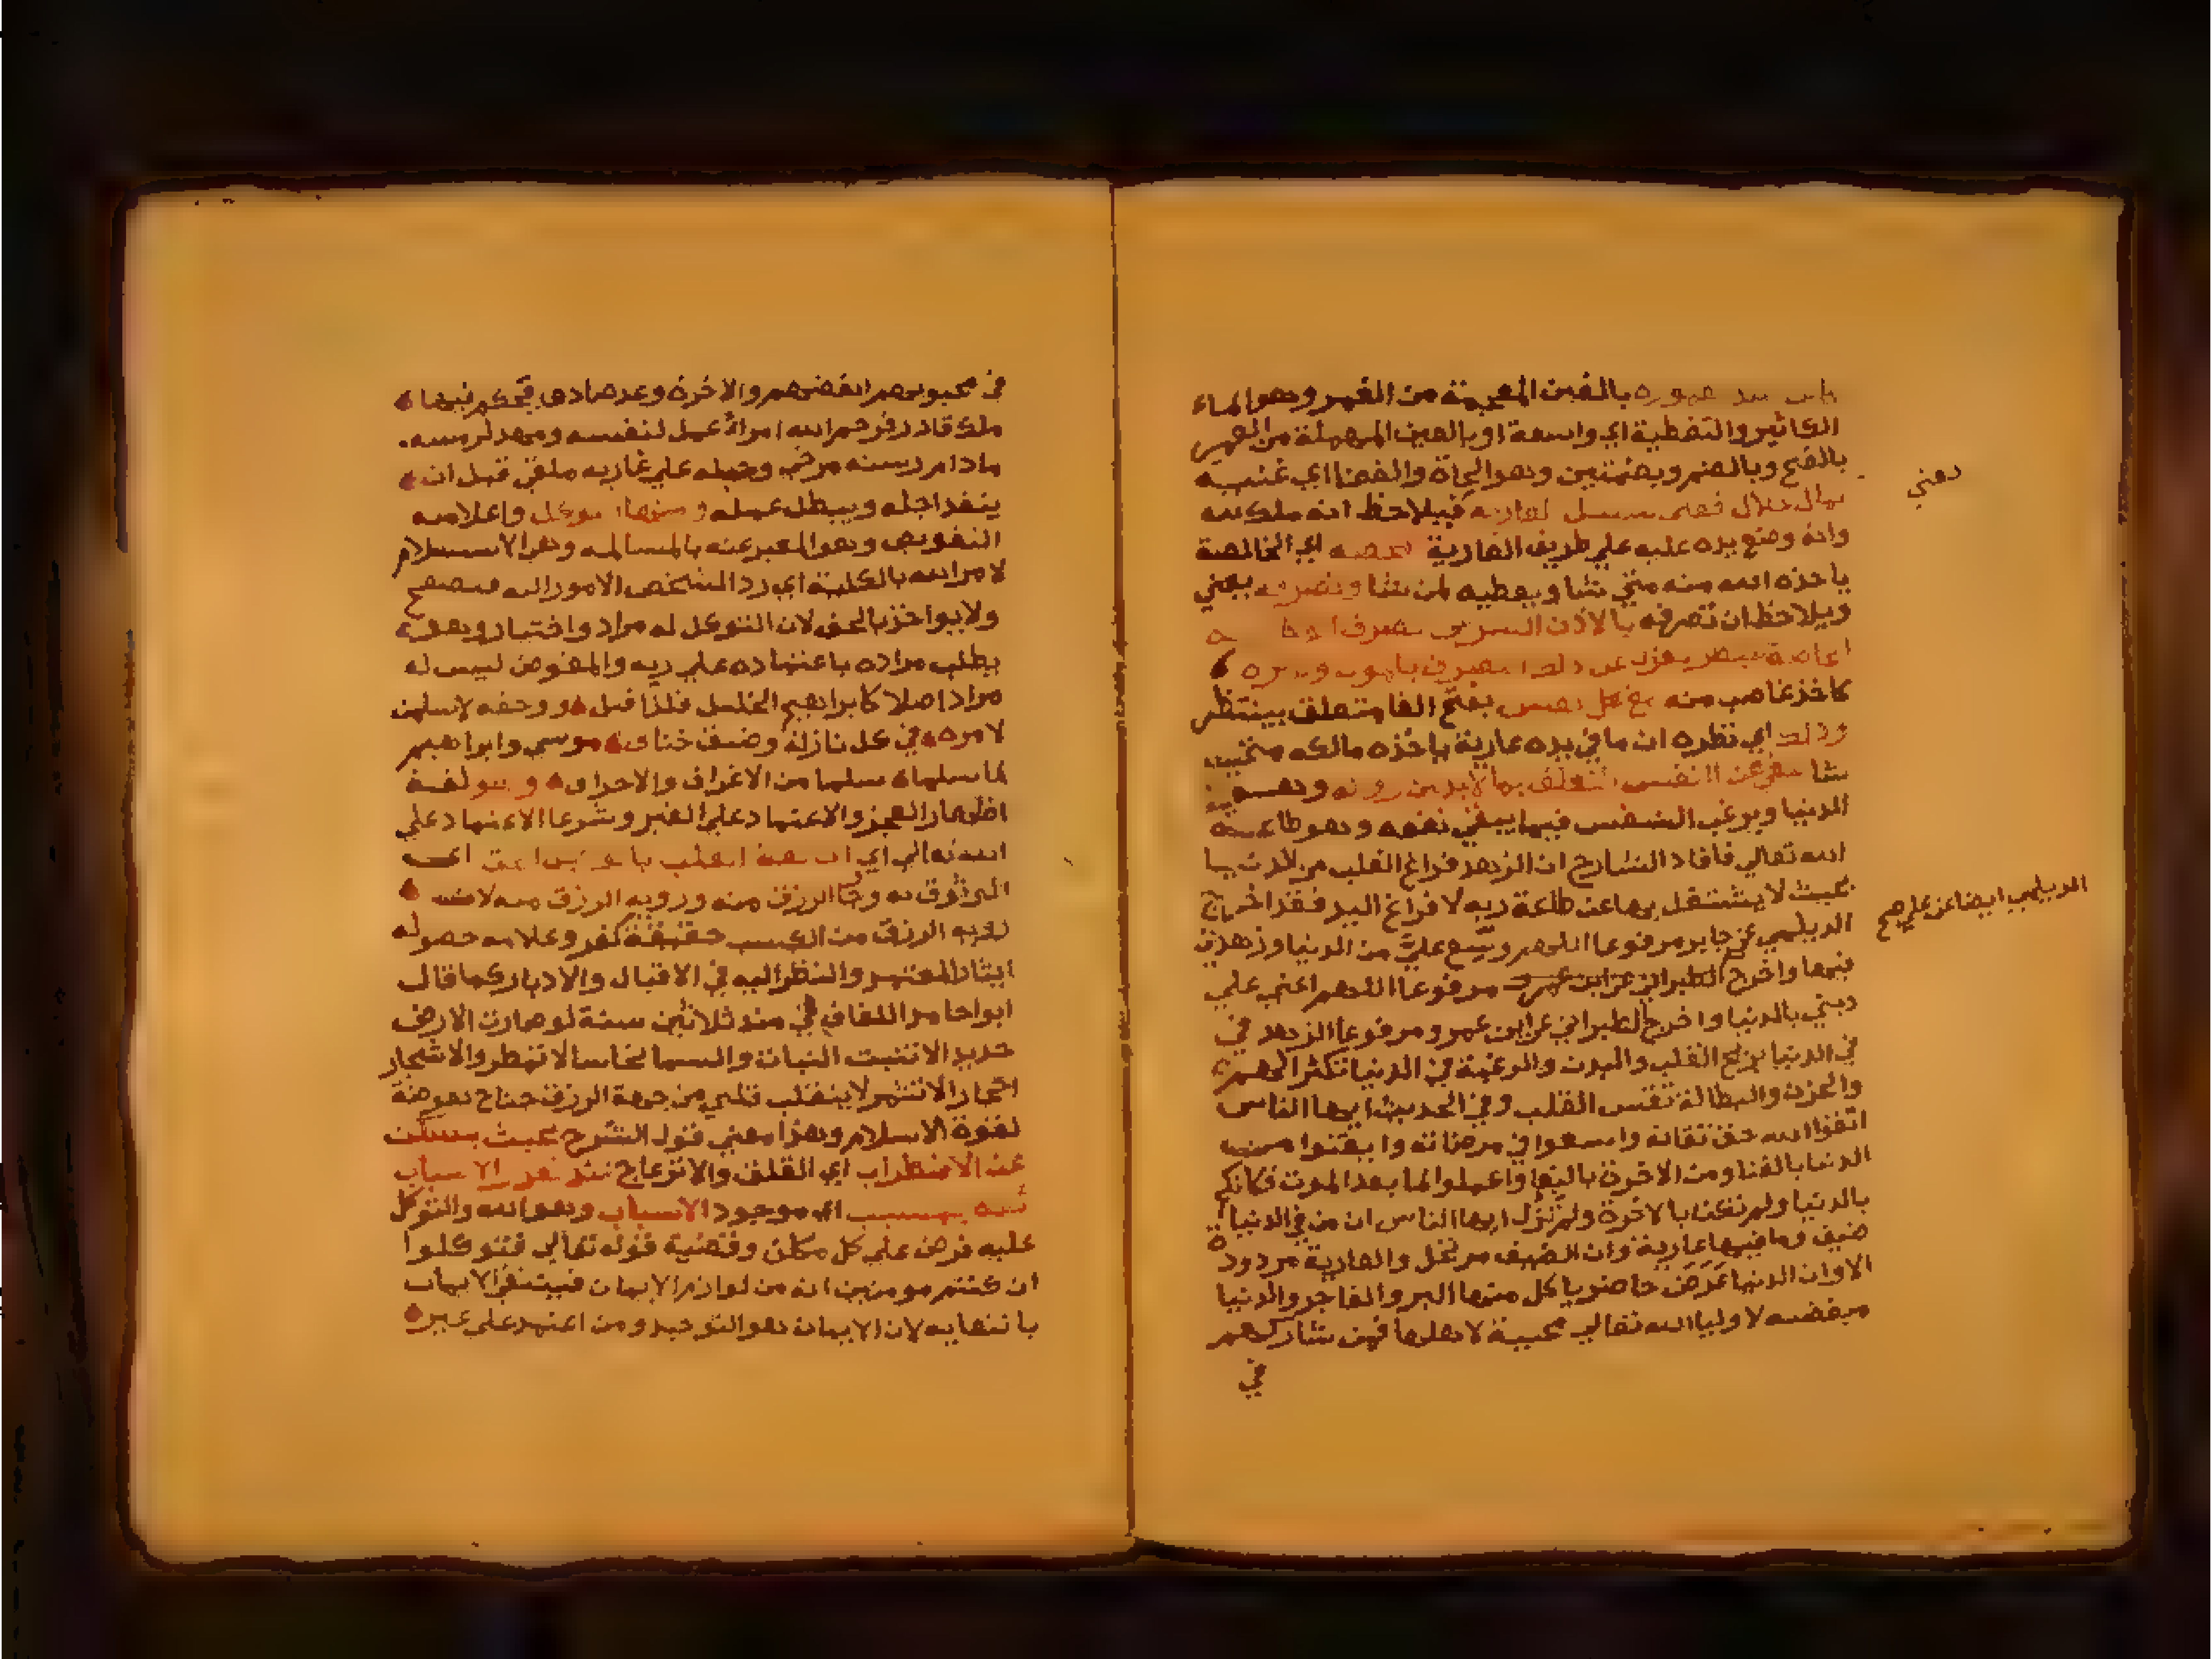 بالغين المعجمة من الغمر وهو الماء
الكاثير والتغطية اي واسعة او بالعين المهملة من العمر
بالفتح وبالضم وبضمتين وهو الحياة والفضا اي غنيه
بمال حلال فيلاحظ انه ملك لله
وانه وضع يده عليه علي طريف العارية اي الخالصة
ياخذه الله منه متي شا ويعطيه لمن شا يعني
ويلاحظ ان تصرفه بالاذن
كاخذ غاصب منه بفتح الفا متعلف بينتظر
وذلك اي نظره ان ما في يده عارية ياخذه مالكه متي
شا النفس التعلف بها
الدنيا ويرغب الشخص فيما يبقي نفعه وهو طاعة
الله تعالي فافاد الشارح ان الزهد فراغ القلب من الدنيا
بحيث لا يشتغل بها عن طاعة ربه لا فراغ اليد فقد اخرج
الديلمي عن جابر مرفوعا اللهم وسع علي من الدنيا وزهدني
فيها واخرج الطبراني عن ابن عمر مرفوعا اللهم اعني علي
ديني بالدنيا واخرج الطبراني عن ابن عمرو مرفوعا الزهد في
في الدنيا يريح القلب والبدن والرغبة في الدنيا تكثر الهم
والحزن والبطالة تقس القلب وفي الحديث ايها الناس
اتقوا الله حق تقاته واسعوا في مرضاته وايقنوا من
الدنيا بالفنا ومن الاخرة بالبقا واعملوا لما بعد الموت فكانكم
بالدنيا ولم تكن بالاخرة ولم تزل ايها الناس ان من في الدنيا
ضيف وما فيها عارية وان الضيف مرتحل والعارية مردودة
الا وان الدنيا عرض حاضر ياكل منها البر والفاجر والدنيا
مبغضه لاوليا الله تعالي محببة لاهلها فمن شاركهم
في
يعني
الديلمي ايضا عن علي صح
في محبوبهم ابغضهم والاخرة وعد صادق يحكم فيها
ملك قادر فرحم الله امراً عمل لنفسه ومهد لرمسه
ما دام رسنه مرخي وحبله علي غاربه ملقي قبل ان
ينفد اجله ويبطل عمله ومنها التوكل واعلاه
التفويض وهو المعبر عنه بالمسالمه وهو الاستسلام
لامر الله بالكلية اي رد الشخص الامور الله
ولا يواخذ بالحق لان التوكل له مراد واختيار وهو
يطلب مراده باعتماده علي ربه والمفوض ليس له
مراد اصلا كابراهيم الخليل فلذا قيل
لامره في كل نازلة وضيف خناق موسي وابراهيم
لما سلما سلما من الاغراق والاحراق وهو لغة
اظهار العجز والاعتماد علي الغير وشرعا الاعتماد علي
الله تعالي اي القلب
الوثوق به ورجا الرزق منه ورويه الرزق منه لا
رويه الرزق من الكسب حقيقة كفر وعلامه حصوله
والنظر اليه في الاقبال والادبار كما قال
ابو احامد اللفاف لي منذ ثلاثين سنة لو صارت الارض
حديد الا تنبت النبات والسما نحاسا لا تمطر والاشجار
احجارا لا تثمر لا ينقلب قلبي من جهة الرزق جناح بعوضة
لقوة الاسلام وهذا معني قول الشرح بحيث يسكن
عن الاضطراب اي القلق والانزعاج عند تعذر الاسباب
ثقة بمسبب اي موجود الاسباب وهو الله والتوكل
عليه فرض علي كل مكلف وقضية قوله تعالي فتوكلوا
ان كنتم مومنين انه من لوازم الايمان فينتفي الايمان
بانتفايه لان الايمان هو التوحيد ومن اعتمد علي غيره